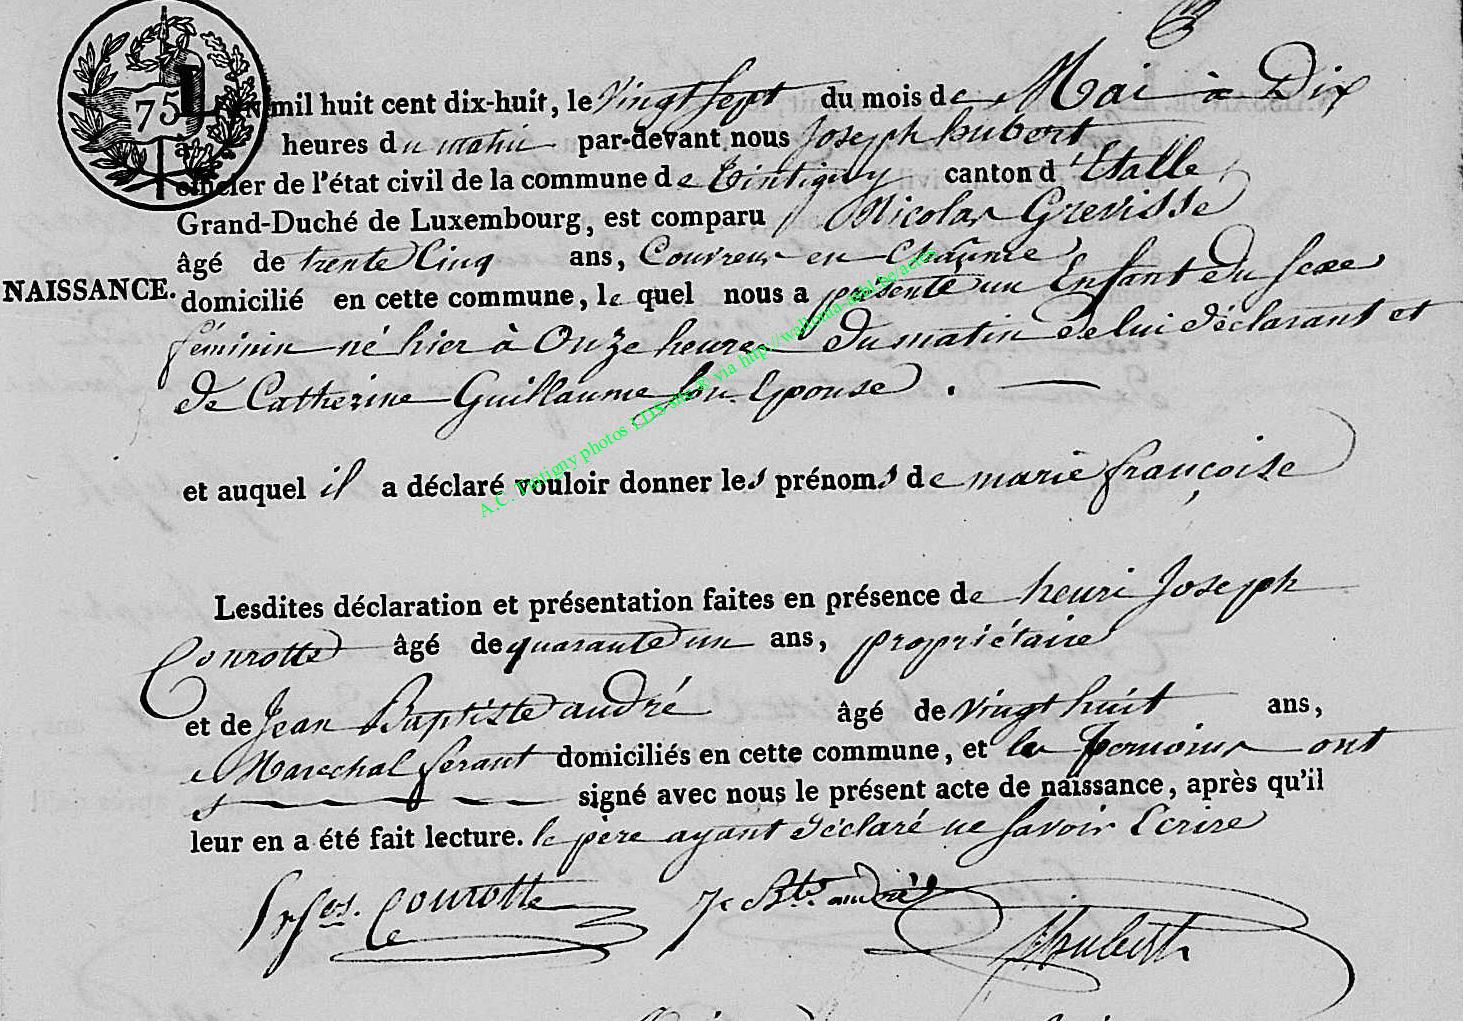 75 L'an mil huit cent dix-huit, le Vingt sept du mois de Mai à Dix
heures du matin par-devant nous Joseph hubert
officier de l'état civil de la commune de Tintigny canton d'Etalle
Grand-Duché de Luxembourg, est comparu Nicolas Grevisse
âgé de trente Cinq ans, Couvreur en Chaume
NAISSANCE. domicilié en cette commune, le quel nous a présenté un Enfant du sexe
féminin né hier à Onze heures Du matin de lui déclarant et
de Catherine Guillaume son Epouse.
et auquel il a déclaré vouloir donner les prénoms de marie françoise
Lesdites déclaration et présentation faites en présence de henri Joseph
Courotte âgé de quarante un ans, propriétaire
et de Jean Baptiste andré âgé de vingt huit ans,
Marechal ferant domiciliés en cette commune, et les temoins ont
signé avec nous le présent acte de naissance, après qu'il
leur en a été fait lecture. le père ayant déclaré ne savoir Ecrire
Courotte J Bte andré Hubert
A.C. Tintigny photos LDS via http://wallonia-asbl.be/actes